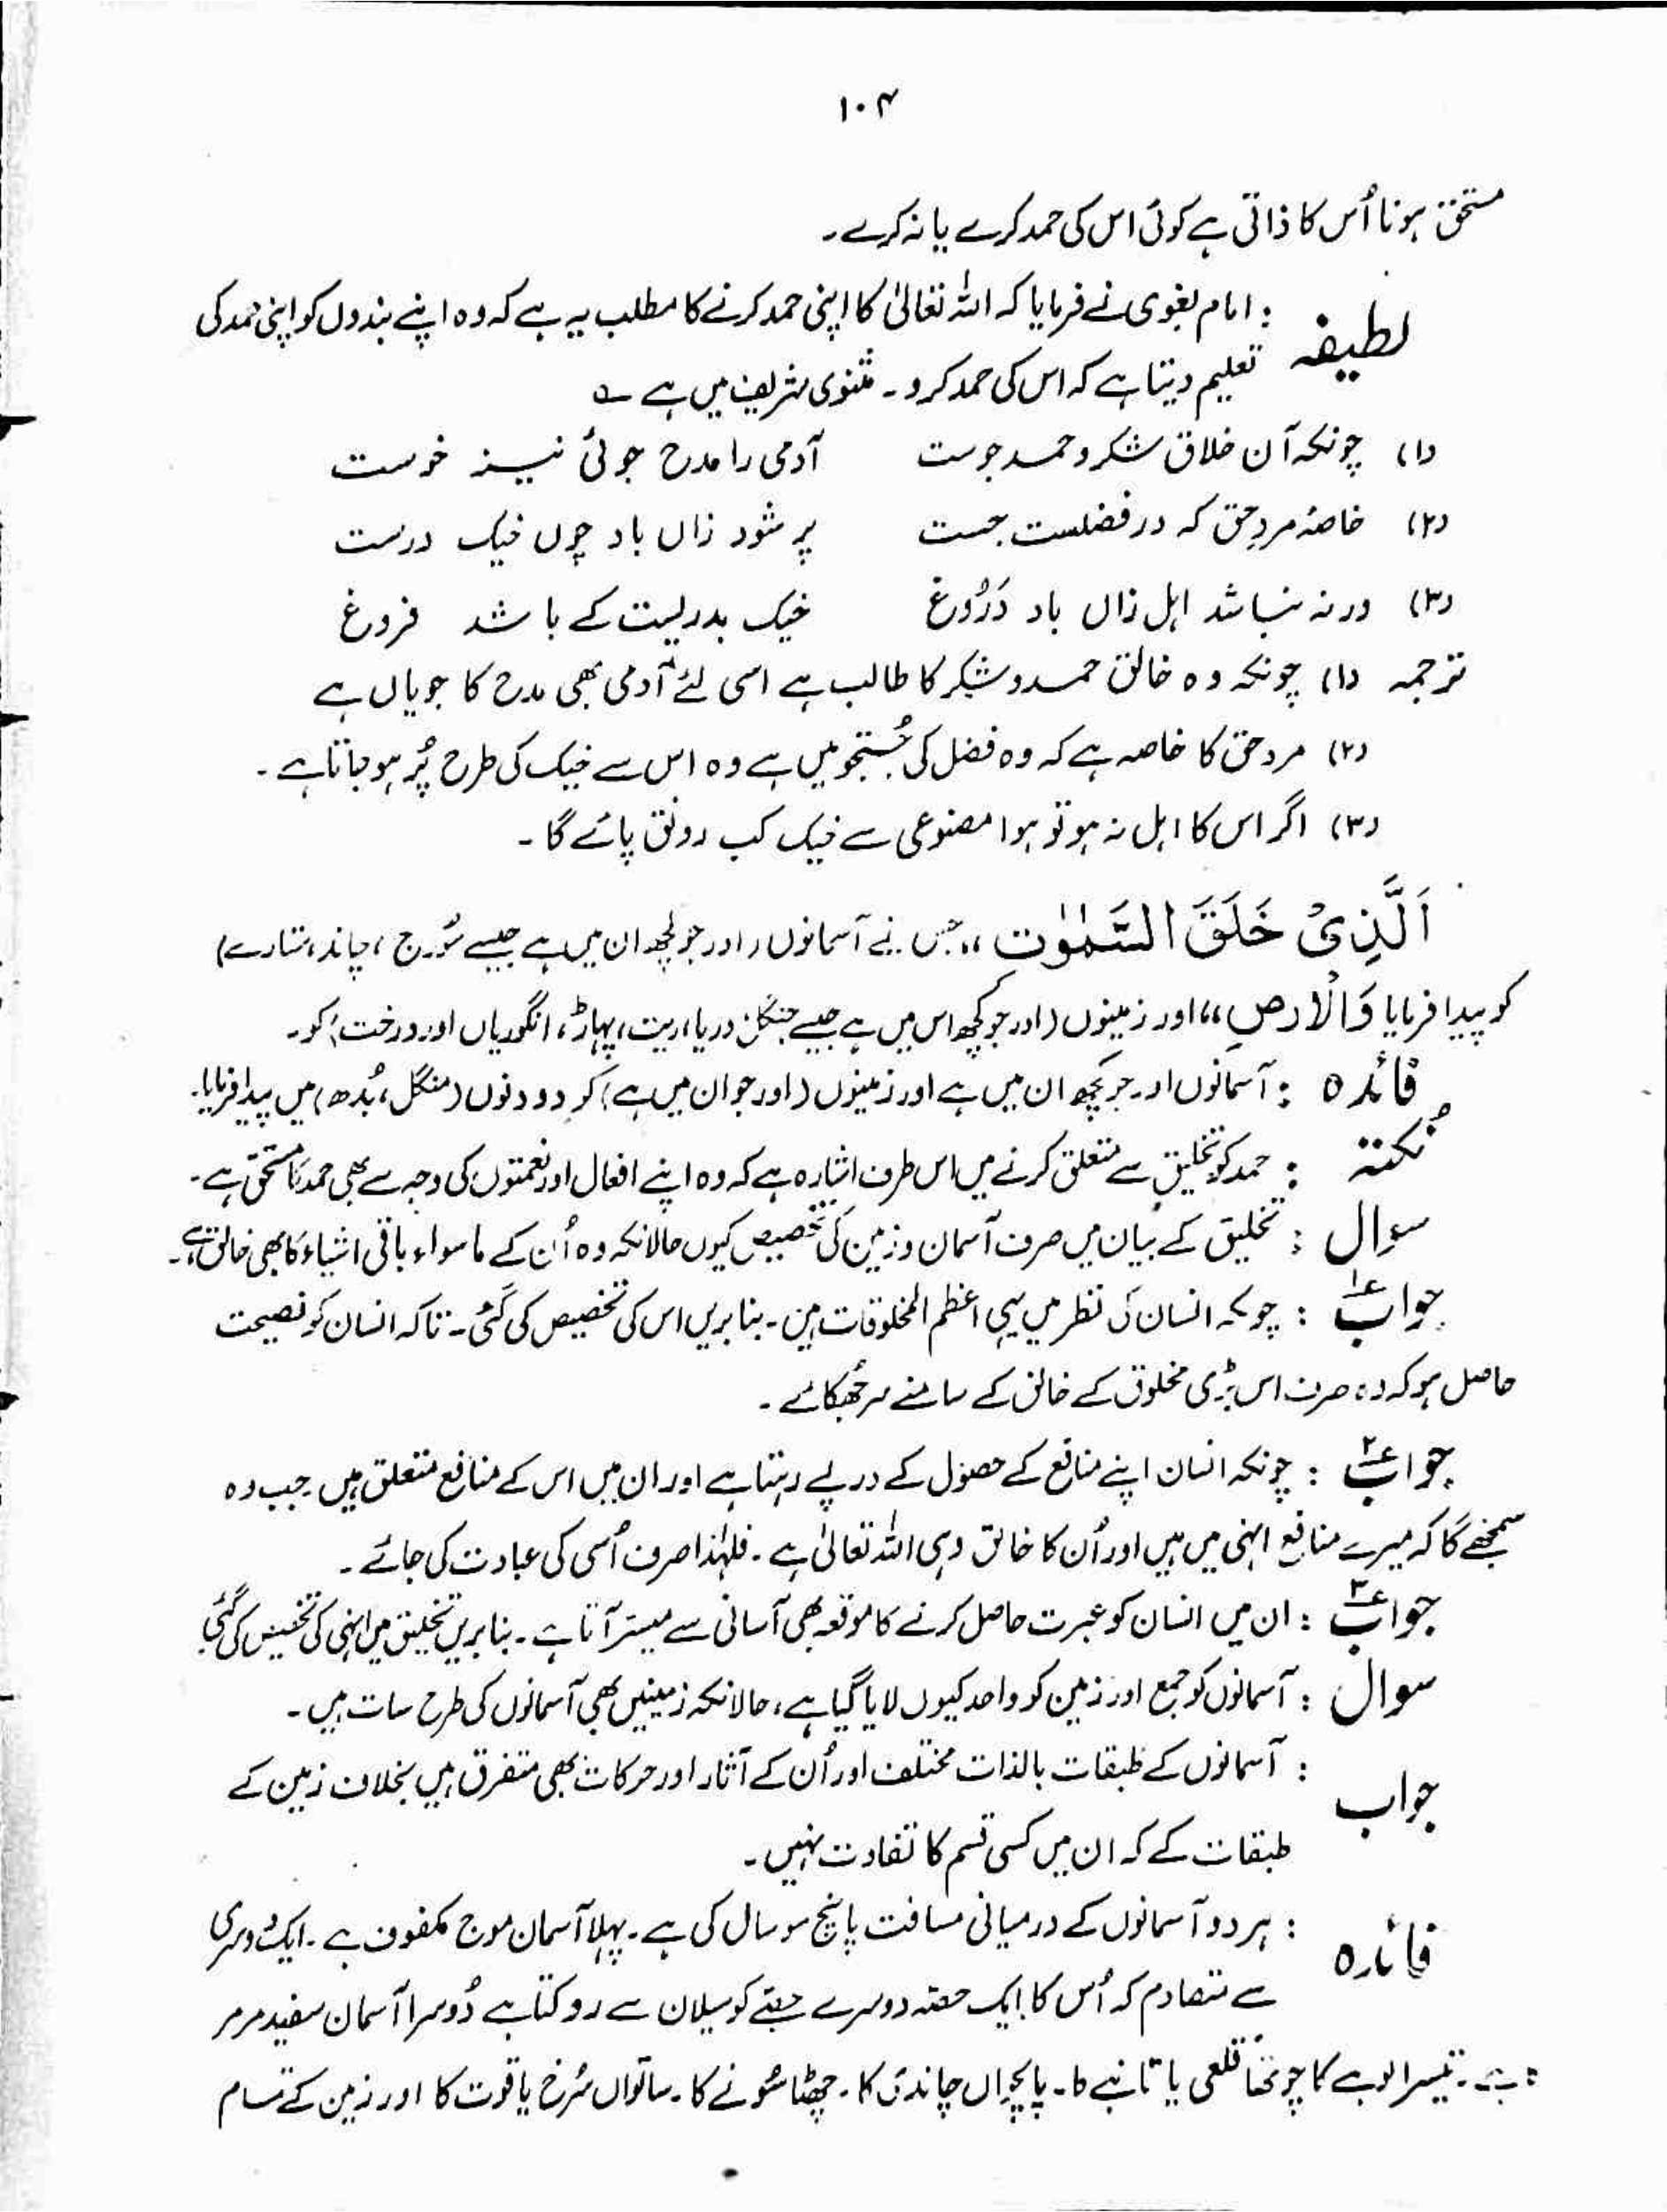 ۱۰۴
مستحق ہونا اُس کا ذاتی ہے کوئی اس کی حمد کرے یا نہ کرے۔
لطیفہ : امام بغوی نے فرمایا کہ اللہ تعالیٰ کا اپنی حمد کرنے کا مطلب یہ ہے کہ وہ اپنے بندوں کو اپنی حمد کی
تعلیم دیتا ہے کہ اس کی حمد کرو ۔ مثنوی شریف میں ہے ؎
(۱) چونکہ آن خلاق شکر و حمد جوست آدمی را مدح جوئی نیز خوست
(۲) خاصۂ مردِ حق کہ در فضلست جست پر شود زاں باد چوں خیک درست
(۳) ورنہ نباشد اہل زاں باد دَرُوغ خیک بدریست کے باشد فروغ
ترجمہ (۱) چونکہ وہ خالق حمد و شکر کا طالب ہے اسی لئے آدمی بھی مدح کا جویاں ہے
(۲) مرد حق کا خاصہ ہے کہ وہ فضل کی جُستجو میں ہے وہ اس سے خیک کی طرح پُر ہو جاتا ہے ۔
(۳) اگر اس کا اہل نہ ہو تو ہوا مصنوعی سے خیک کب رونق پائے گا ۔
اَلَّذِیْ خَلَقَ السَّمٰوٰتِ ،،جس نے آسمانوں (اور جو کچھ ان میں ہے جیسے سُورج ، چاند ، ستارے)
کو پیدا فرمایا وَالْاَرضِ ،، اور زمینوں (اور جو کچھ اس میں ہے جیسے جنگل، دریا، ریت، پہاڑ، انگوریاں اور درخت) کو ۔
فائدہ : آسمانوں اور جو کچھ ان میں ہے اور زمینوں (اور جو ان میں ہے) کو دو دنوں (منگل، بُدھ) میں پیدا فرمایا۔
نُکتہ : حمد کو تخلیق سے متعلق کرنے میں اس طرف اشارہ ہے کہ وہ اپنے افعال اور نعمتوں کی وجہ سے بھی حمد کا مستحق ہے ۔
سوال : تخلیق کے بیان میں صرف آسمان و زمین کی تخصیص کیوں حالانکہ وہ اُن کے ماسواء باقی اشیاء کا بھی خالق ہے ۔
جواب ۱؎ : چونکہ انسان کی نظر میں یہی اعظم المخلوقات ہیں ۔ بنا بریں اس کی تخصیص کی گئی ۔ تاکہ انسان کو نصیحت
حاصل ہو کہ وہ صرف اس بڑی مخلوق کے خالق کے سامنے سر جُھکائے ۔
جواب ۲؎ : چونکہ انسان اپنے منافع کے حصول کے درپے رہتا ہے اور ان میں اس کے منافع متعلق ہیں جب وہ
سمجھے گا کہ میرے منافع انہی میں ہیں اور اُن کا خالق وہی اللہ تعالیٰ ہے ۔ فلہٰذا صرف اُسی کی عبادت کی جائے ۔
جواب ۳؎ : ان میں انسان کو عبرت حاصل کرنے کا موقعہ بھی آسانی سے میسّر آتا ہے ۔ بنا بریں تخلیق میں انہی کی تخصیص کی گئی
سوال : آسمانوں کو جمع اور زمین کو واحد کیوں لایا گیا ہے ، حالانکہ زمینیں بھی آسمانوں کی طرح سات ہیں ۔
جواب : آسمانوں کے طبقات بالذات مختلف اور اُن کے آثار اور حرکات بھی متفرق ہیں بخلاف زمین کے
طبقات کے کہ ان میں کسی قسم کا تفاوت نہیں ۔
فائدہ : ہر دو آسمانوں کے درمیانی مسافت پانچ سو سال کی ہے ۔ پہلا آسمان موج مکفوف ہے ۔ ایک دوسری
سے متصادم کہ اُس کا ایک حصّہ دوسرے حصّے کو سیلان سے روکتا ہے دُوسرا آسمان سفید مرمر
ہے ۔ تیسرا لوہے کا چوتھا قلعی یا تانبے کا ۔ پانچواں چاندی کا ۔ چھٹا سُونے کا ۔ ساتواں سُرخ یاقوت کا اور زمین کے تمام